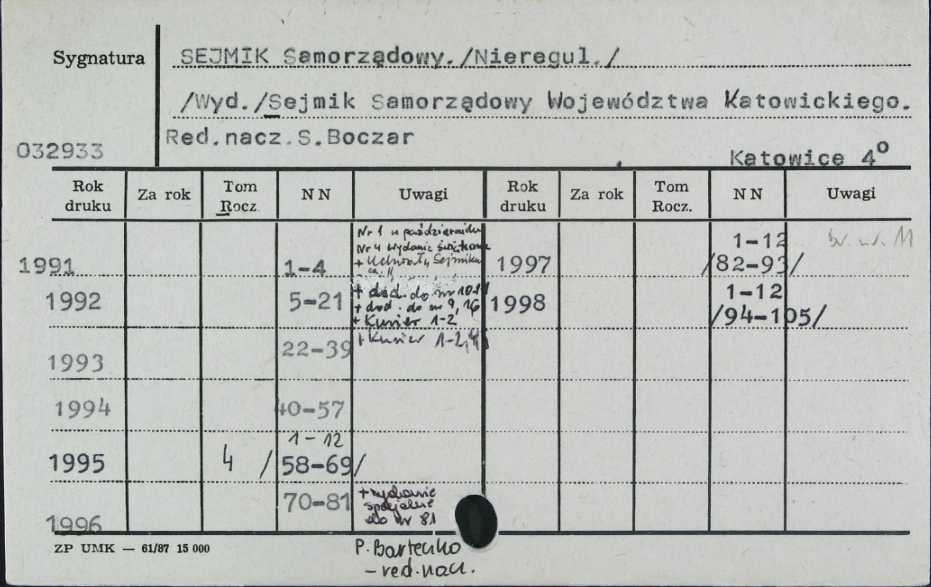 Sygnatura SEJMIK Samorządowy./Nieregul./
/Wyd./Sejmik Samorządowy Województwa Katowickiego.
Red.nacz.S.Boczar
032933 Katowice 4°
Rok druku Za rok Tom Rocz. NN Uwagi Rok druku Za rok Tom Rocz. NN Uwagi
1991 1-4 Nr 1 w październiku
Nr 4 wydanie świąteczne
+ Uchwały Sejmiku
1997 1-12
/82-93/
1992 5-21 + dod. do nr 10
+ dod. do nr 9, 16
+ Kurier 1-2
1998 1-12
/94-105/
1993 22-39 + Kurier 1-2,
1994 40-57
1995 4 1-12
/58-69/
1996 70-81 + wydanie
specjalne
do nr 81
ZP UMK — 61/87 15 000
P. Bartenko
- red. nacz.